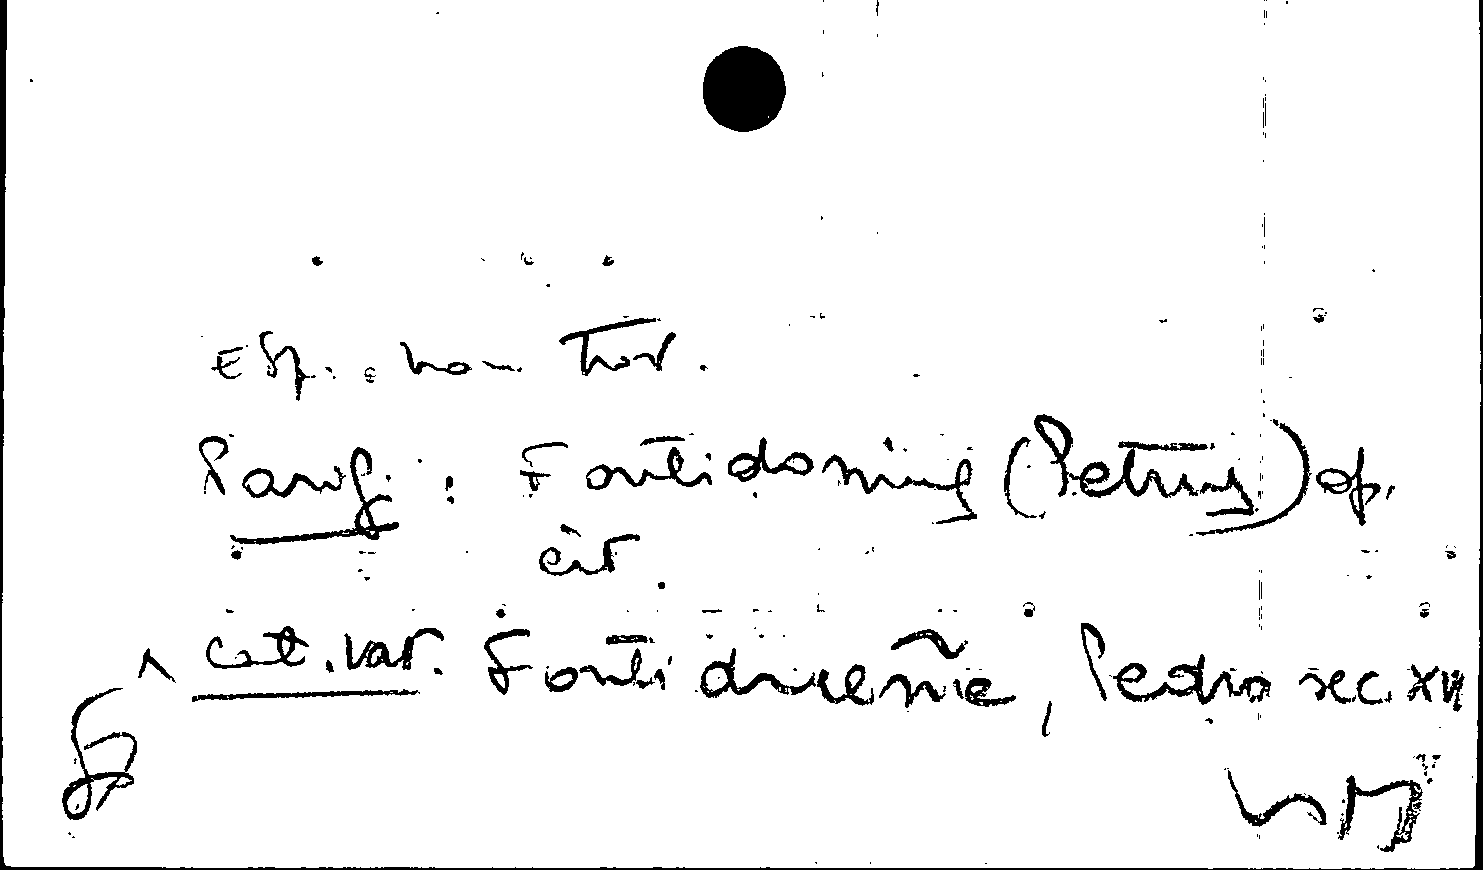 Esp. : non trov.
Parigi : Fontidonius (Petrus) op.
cit.
Cat. Vat. Fontidueñe, Pedro sec XVI